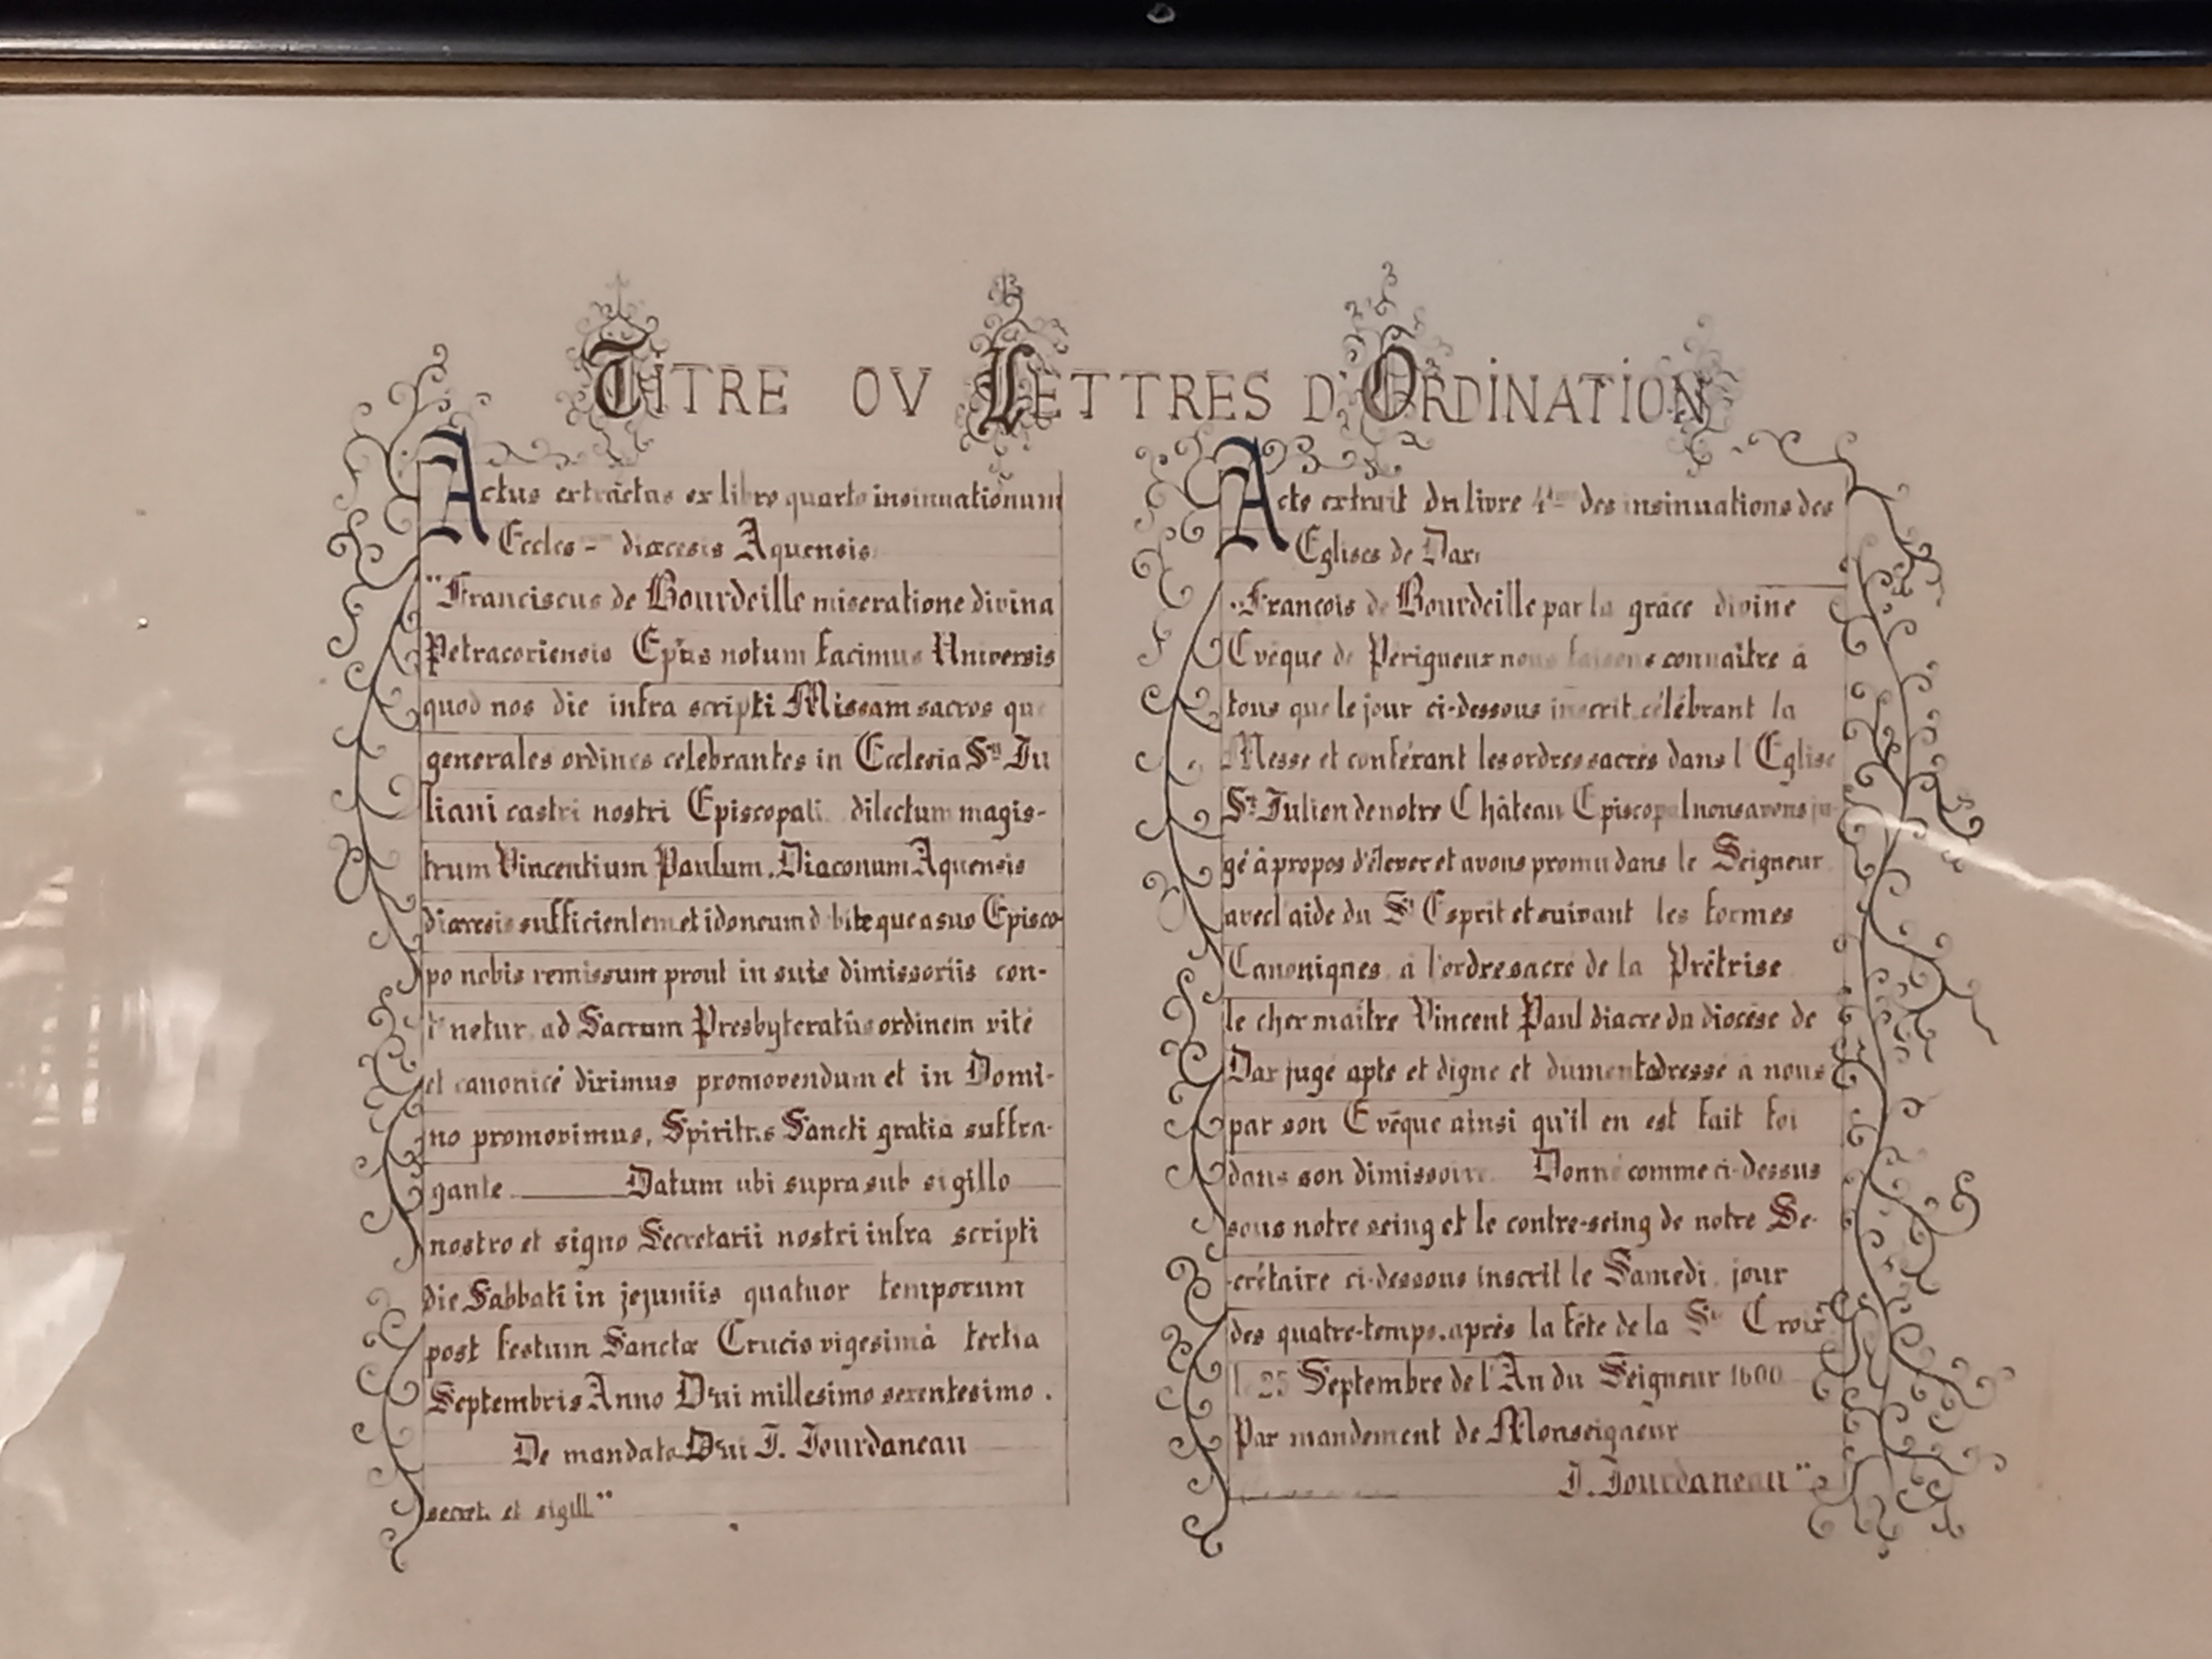 TITRE OV LETTRES D'ORDINATION
Actus extractus ex libro quarto insinuationum
Eccles - diœcesis Aquensis
"Franciscus de Bourdeille miseratione divina
Petracoriensis Epũs notum facimus Universis
quod nos die infra scripti Missam sacros que
generales ordines celebrantes in Ecclesia Sti Ju
liani castri nostri Episcopali dilectum magis-
trum Vincentium Paulum. Diaconum Aquensis
diœcesis sufficientem et idoneum debite que a suo Episco-
po nobis remissum prout in suis dimissoriis con-
netur ad Sacrum Presbyteratûs ordinem rité
et canonicé dirimus promovendum et in Domi-
no promovimus, Spiritus Sancti gratiâ suffra-
gante Datum ubi supra sub sigillo
nostro et signo Secretarii nostri infra scripti
die Sabbati in jejuniis quatuor temporum
post festum Sanctœ Crucis vigesimâ tertia
Septembris Anno Dni millesimo sexentesimo.
De mandato Dni J. Jourdaneau
secret. et sigill."
Acte extrait du livre 4me des insinuations des
Eglises de Dax
"François de Bourdeille par la grâce divine
Evêque de Perigueux nous faisons connaître à
tous que le jour ci-dessous inscrit célébrant la
Messe et conférant les ordres sacrés dans l Eglise
St Julien de notre Château Episcopal nous avons ju-
gé à propos d'élever et avons promu dans le Seigneur
avec l'aide du St Esprit et suivant les formes
Canoniques, à l'ordre sacré de la Prêtrise
le cher maître Vincent Paul diacre du diocèse de
Dax jugé apte et digne et dument adressé à nous
par son Evêque ainsi qu'il en est fait foi
dans son dimissoire. Donné comme ci-dessus
sous notre seing et le contre-seing de notre Se-
crétaire ci-dessous inscrit le Samedi, jour
des quatre-temps, après la fête de la Ste Croix
Septembre de l'An du Seigneur 1600
Par mandement de Monseigneur
J. Jourdaneau"